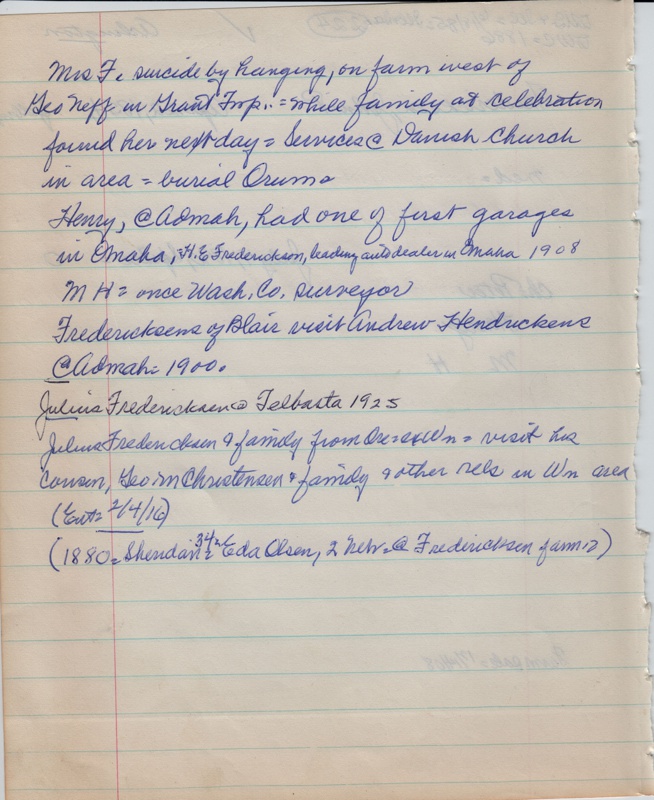 Mrs F. suicide by hanging, on farm west of
Geo Neff in Grant Twp.. = while family at celebration
found her next day = Services @ Danish Church
in area = burial Orum.
Henry, @ Admah, had one of first garages
in Omaha, H.E Frederickson, leading auto dealer in Omaha 1908
M H = once Wash. Co. surveyor
Fredericksens of Blair visit Andrew Hendricksens
@ Admah = 1900.
Julius Fredericksen @ Telbasta 1925
Julius Fredericksen & family from Ore = @ Wn = visit his
Cousin, Geo M Christensen & family & other rels in Wn area
(Ent = 2/4/16)
(1880 = Sheridan = 34 = Eda Olsen, 2 Nebr = @ Fredericksen farm 12)